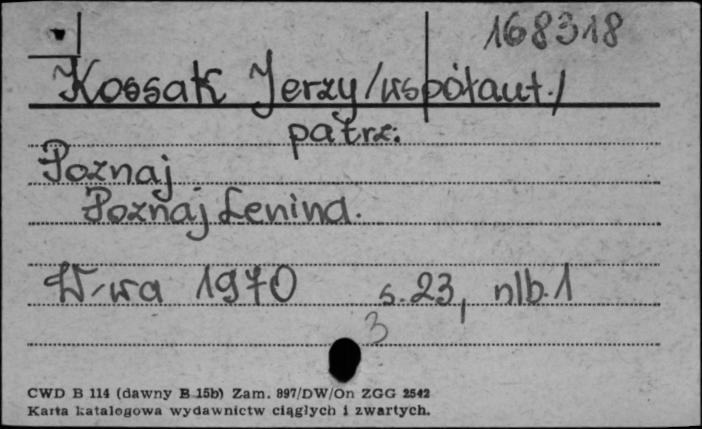 168318
Kossak Jerzy /współaut./
patrz:
Poznaj
Poznaj Lenina.
W-wa 1970 s. 23, nlb. 1
3
CWD B 114 (dawny B 15b) Zam. 897/DW/On ZGG 2542
Karta katalogowa wydawnictw ciągłych i zwartych.